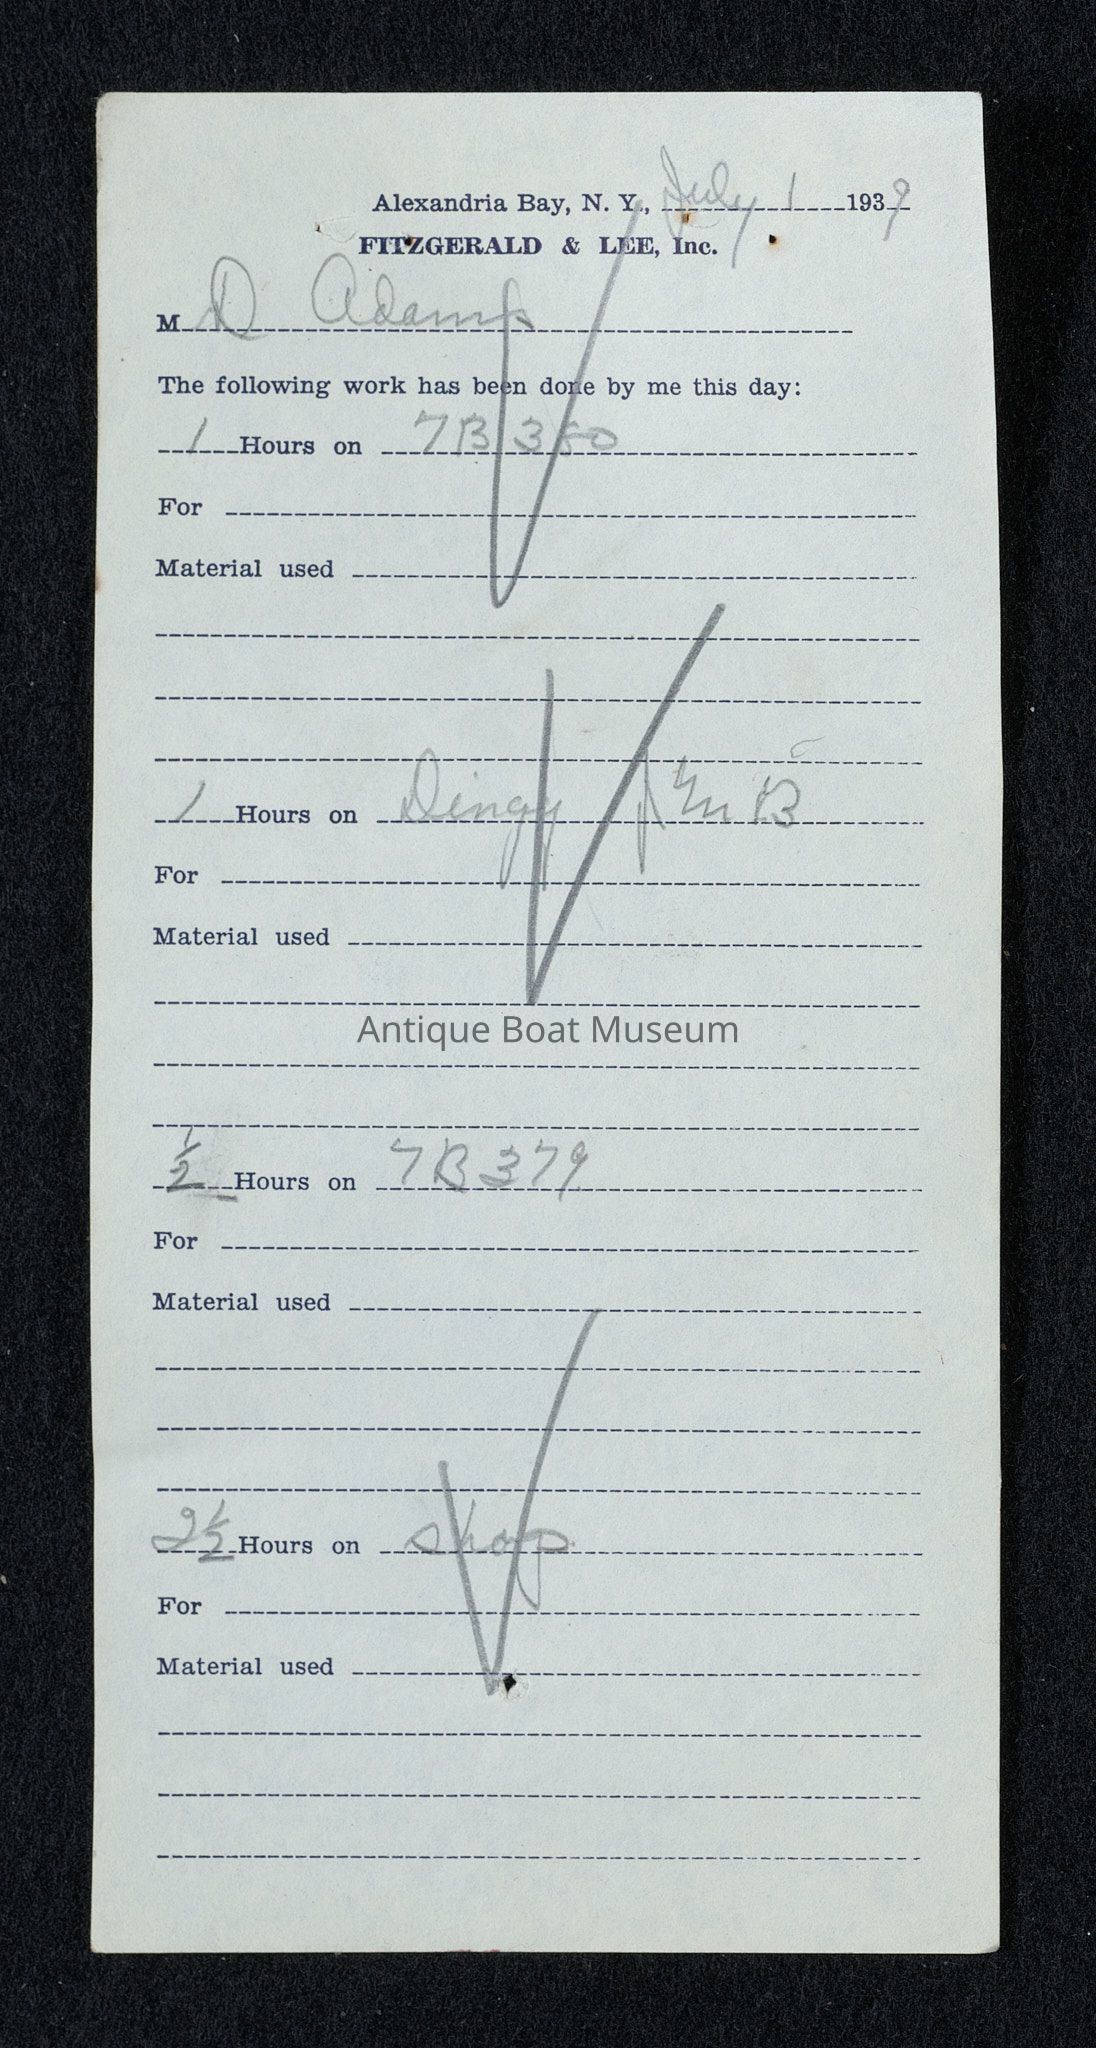 Alexandria Bay, N. Y., July 1 1939
FITZGERALD & LEE, Inc.
M D Adams
The following work has been done by me this day:
1 Hours on 7B 380
For
Material used
1 Hours on Dingy
For
Material used
Antique Boat Museum
1/2 Hours on 7B 379
For
Material used
2 1/2 Hours on shop
For
Material used